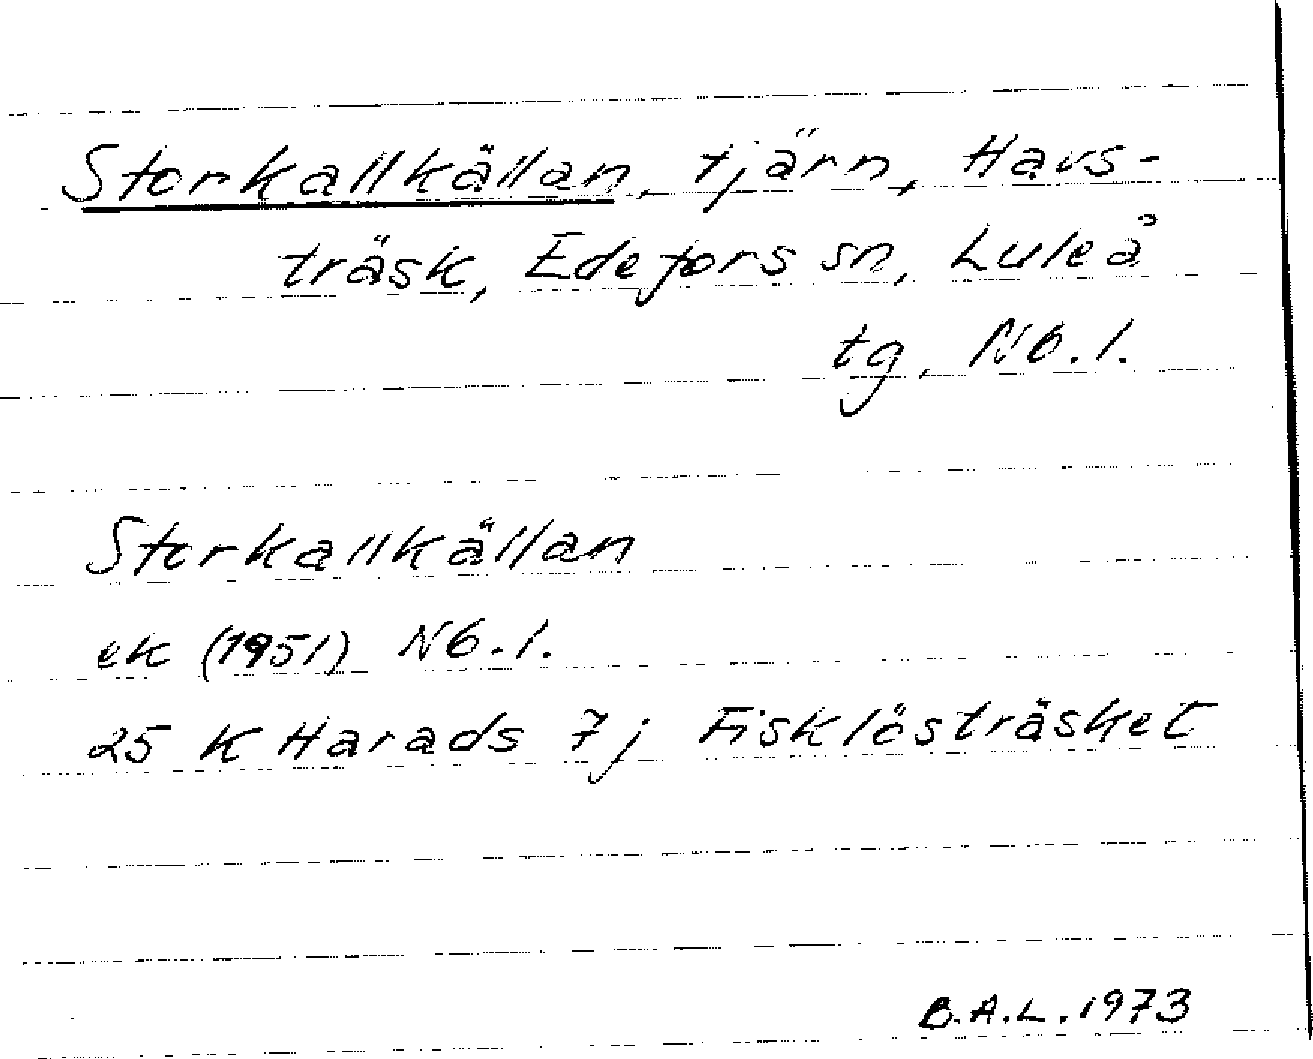 Storkallkällan, tjärn, Havs-
träsk, Edefors sn, Luleå
tg, Nb.l.
Storkallkällan
ek (1951) Nb.l.
25 K Harads 7j Fisklösträsket
B.A.L. 1973